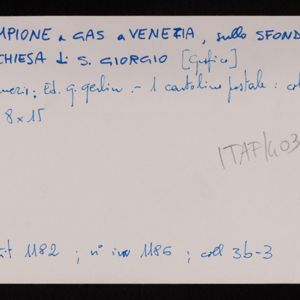 MPIONE a GAS a VENEZIA, sullo SFOND
CHIESA di S. GIORGIO [Grafica]
: Ed. G. - 1 cartolina postale : col
8 x 15
ITAF/403
1182 ; n° inv 1186 ; coll 3b-3